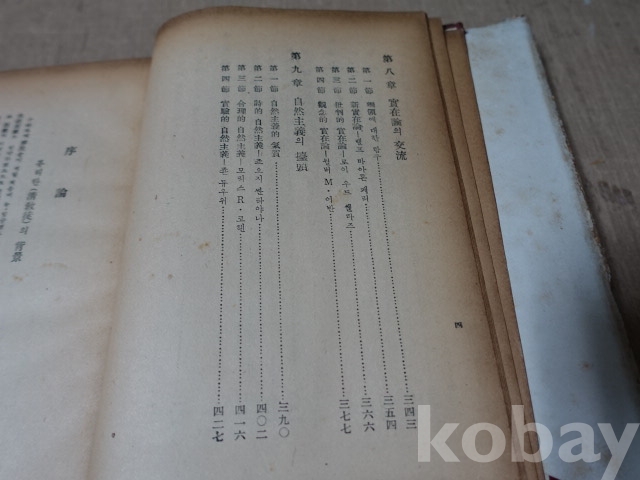 第八章 實在論의 交流
第一節 ………三四三
第二節 新實在論ー랠프 바아튼 페리………三五四
第三節 批判的 實在論ー로이 우드 쎌라즈………三六六
第四節 觀念的 實在論ー윌버 M·어반………三七七
第九章 自然主義의 擡頭
第一節 自然主義的 氣質………三九〇
第二節 詩的 自然主義ー죠오지 싼타야나………四〇二
第三節 合理的 自然主義ー모리스 R·코헨………四一六
第四節 實驗的 自然主義ー죤 듀우위………四二七
四
序論
의 背景
kobay